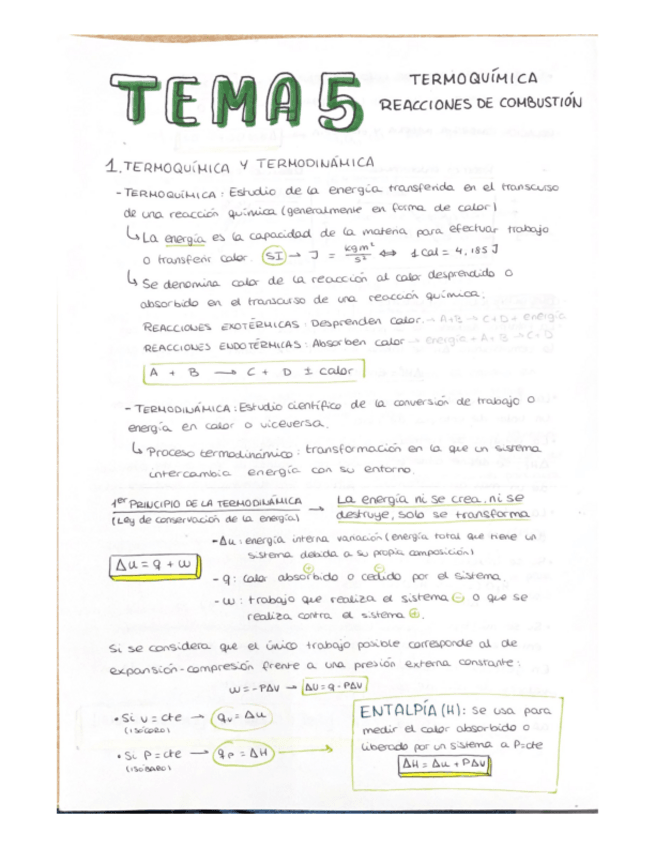 TEMA 5
TERMOQUÍMICA
REACCIONES DE COMBUSTIÓN
1. TERMOQUÍMICA Y TERMODINÁMICA
- TERMOQUÍMICA: Estudio de la energía transferida en el transcurso
de una reacción química (generalmente en forma de calor)
↳ La energía es la capacidad de la materia para efectuar trabajo
o transferir calor. (SI) → J = kgm²/s² ⇔ 1 Cal = 4,185 J
↳ Se denomina calor de la reacción al calor desprendido o
absorbido en el transcurso de una reacción química.
REACCIONES EXOTÉRMICAS: Desprenden calor. → A+B → C+D + energía
REACCIONES ENDOTÉRMICAS: Absorben calor → energía + A + B → C+D
A + B → C + D ± calor
- TERMODINÁMICA: Estudio científico de la conversión de trabajo o
energía en calor o viceversa.
↳ Proceso termodinámico: transformación en la que un sistema
intercambia energía con su entorno.
1er PRINCIPIO DE LA TERMODINÁMICA → La energía ni se crea, ni se
(Ley de conservación de la energía) destruye, solo se transforma
- Δu: energía interna variación (energía total que tiene un
sistema debida a su propia composición)
Δu = q + w
- q: calor absorbido ⊕ o cedido ⊖ por el sistema.
- w: trabajo que realiza el sistema ⊖ o que se
realiza contra el sistema ⊕.
Si se considera que el único trabajo posible corresponde al de
expansión-compresión frente a una presión externa constante:
w = - PΔV → ΔU = q - PΔV
• Si v = cte → qv = Δu
(ISÓCORO)
• Si P = cte → qp = ΔH →
(ISÓBARO)
ENTALPÍA (H): se usa para
medir el calor absorbido o
liberado por un sistema a P=cte
ΔH = Δu + PΔV